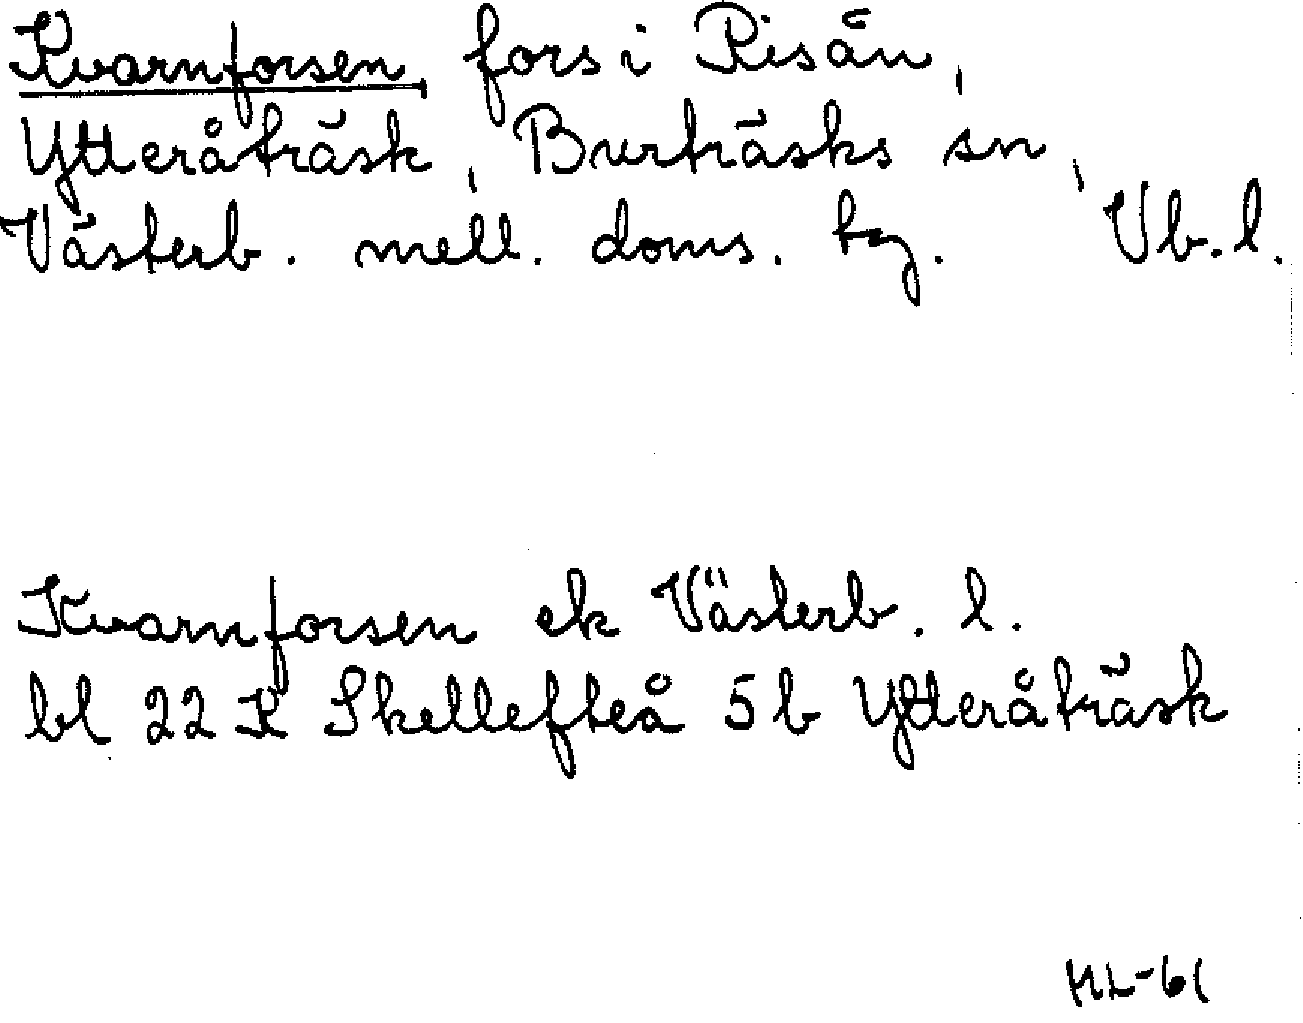 Kvarnforsen, fors i Risån,
Ytteråträsk, Burträsks sn,
Västerb. mell. doms. tg. Vb. l.
Kvarnforsen ek Västerb. l.
bl 22 K Skellefteå 5 b Ytteråträsk
HL-61